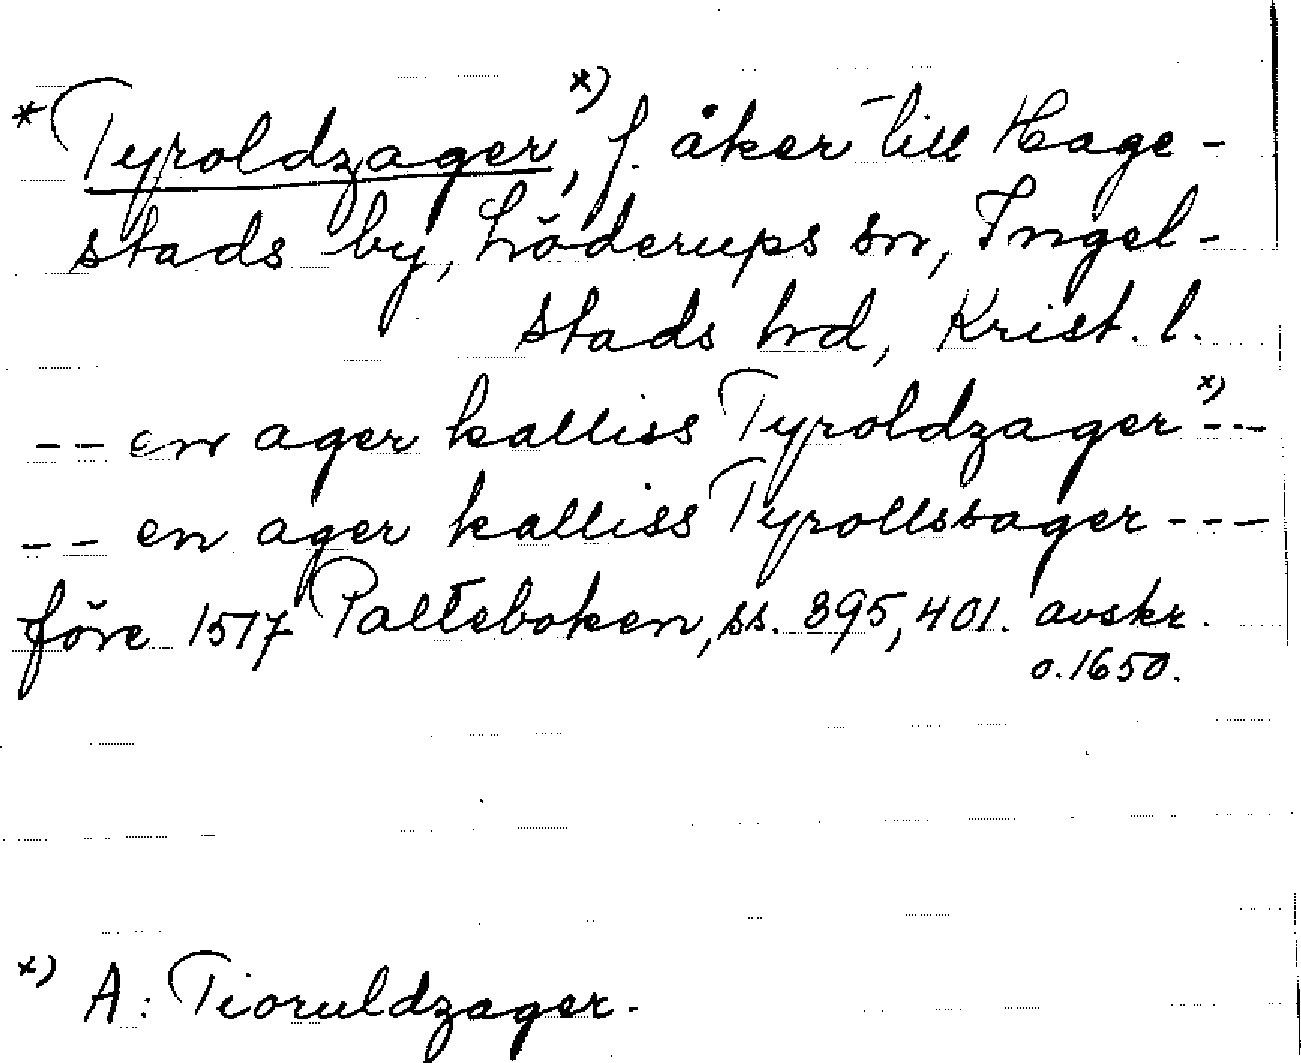 * Tyroldzager x), f. åker till Hage-
stads by, Löderups sn, Ingel-
stads hd, Krist. l.
-- en ager kalliss Tyroldzager x) ---
-- en ager kalliss Tyrollssager ---
före 1517 Palteboken, ss. 395, 401. avskr.
o. 1650.
x) A: Tioruldzager.